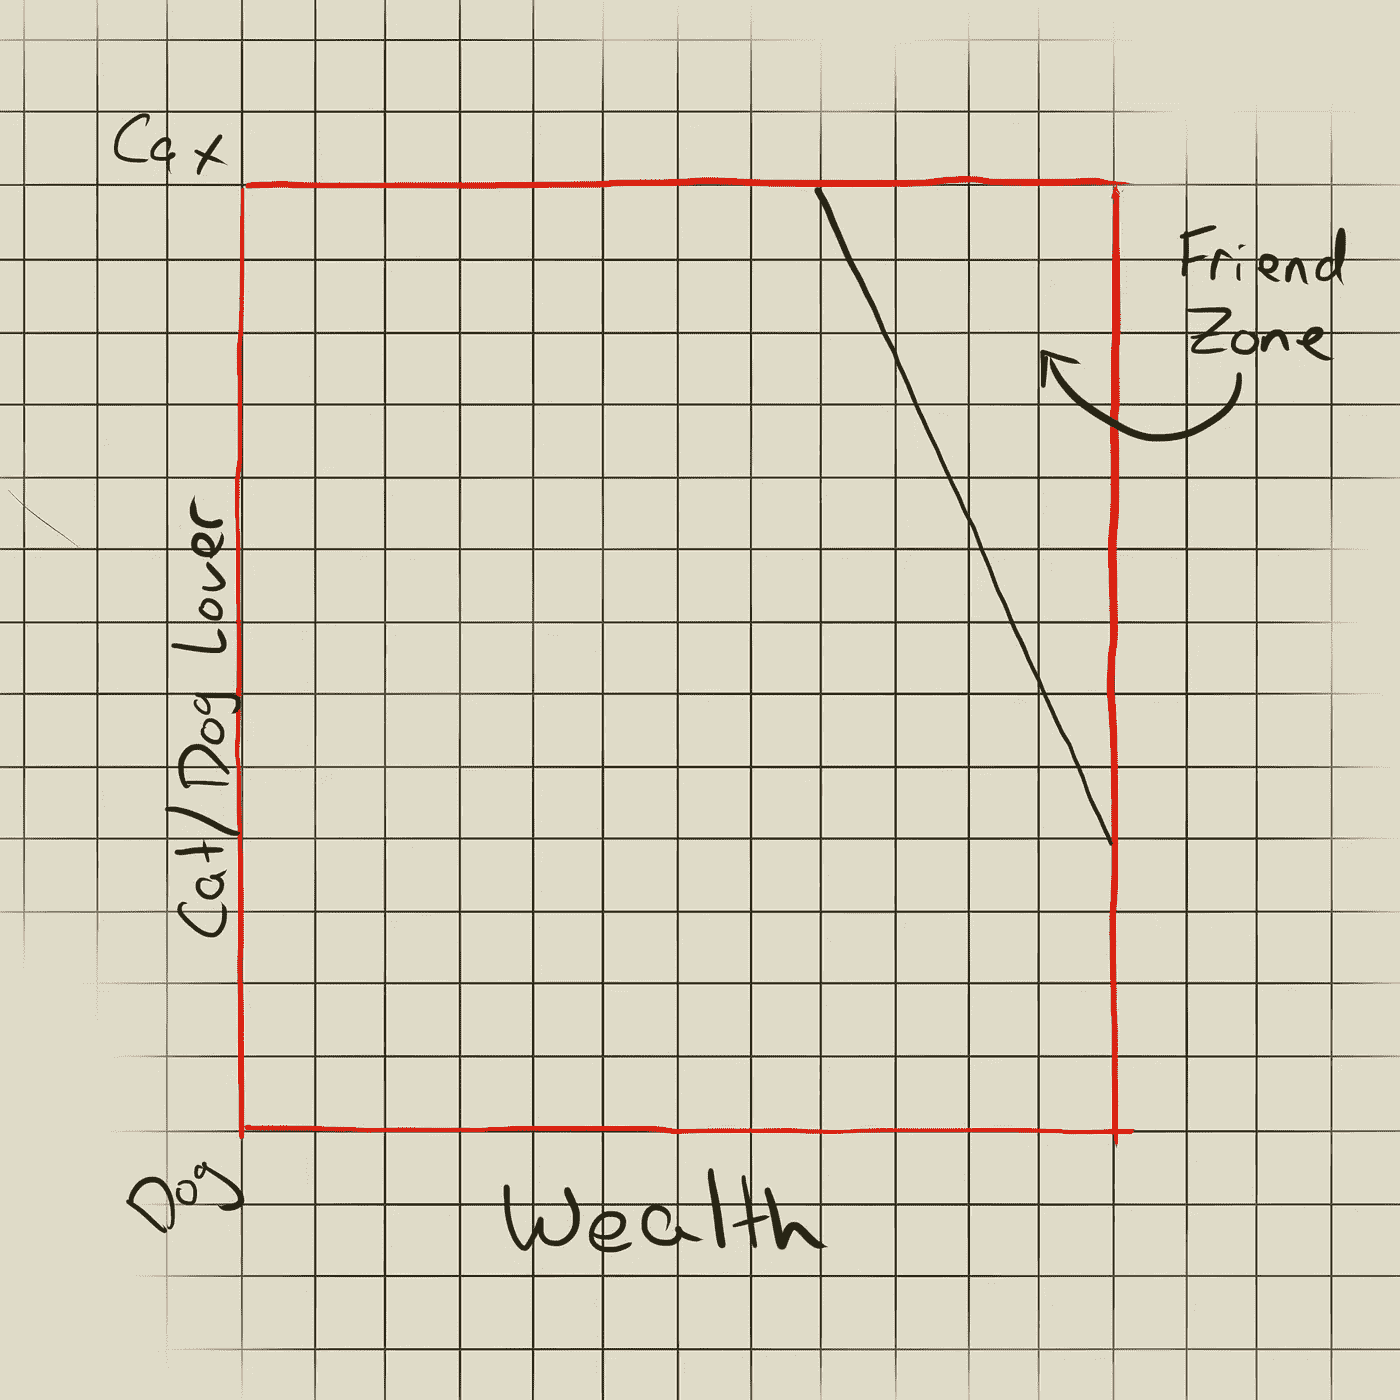 Cax
Friend
Zone
Cat/Dog Lover
Dog
Wealth